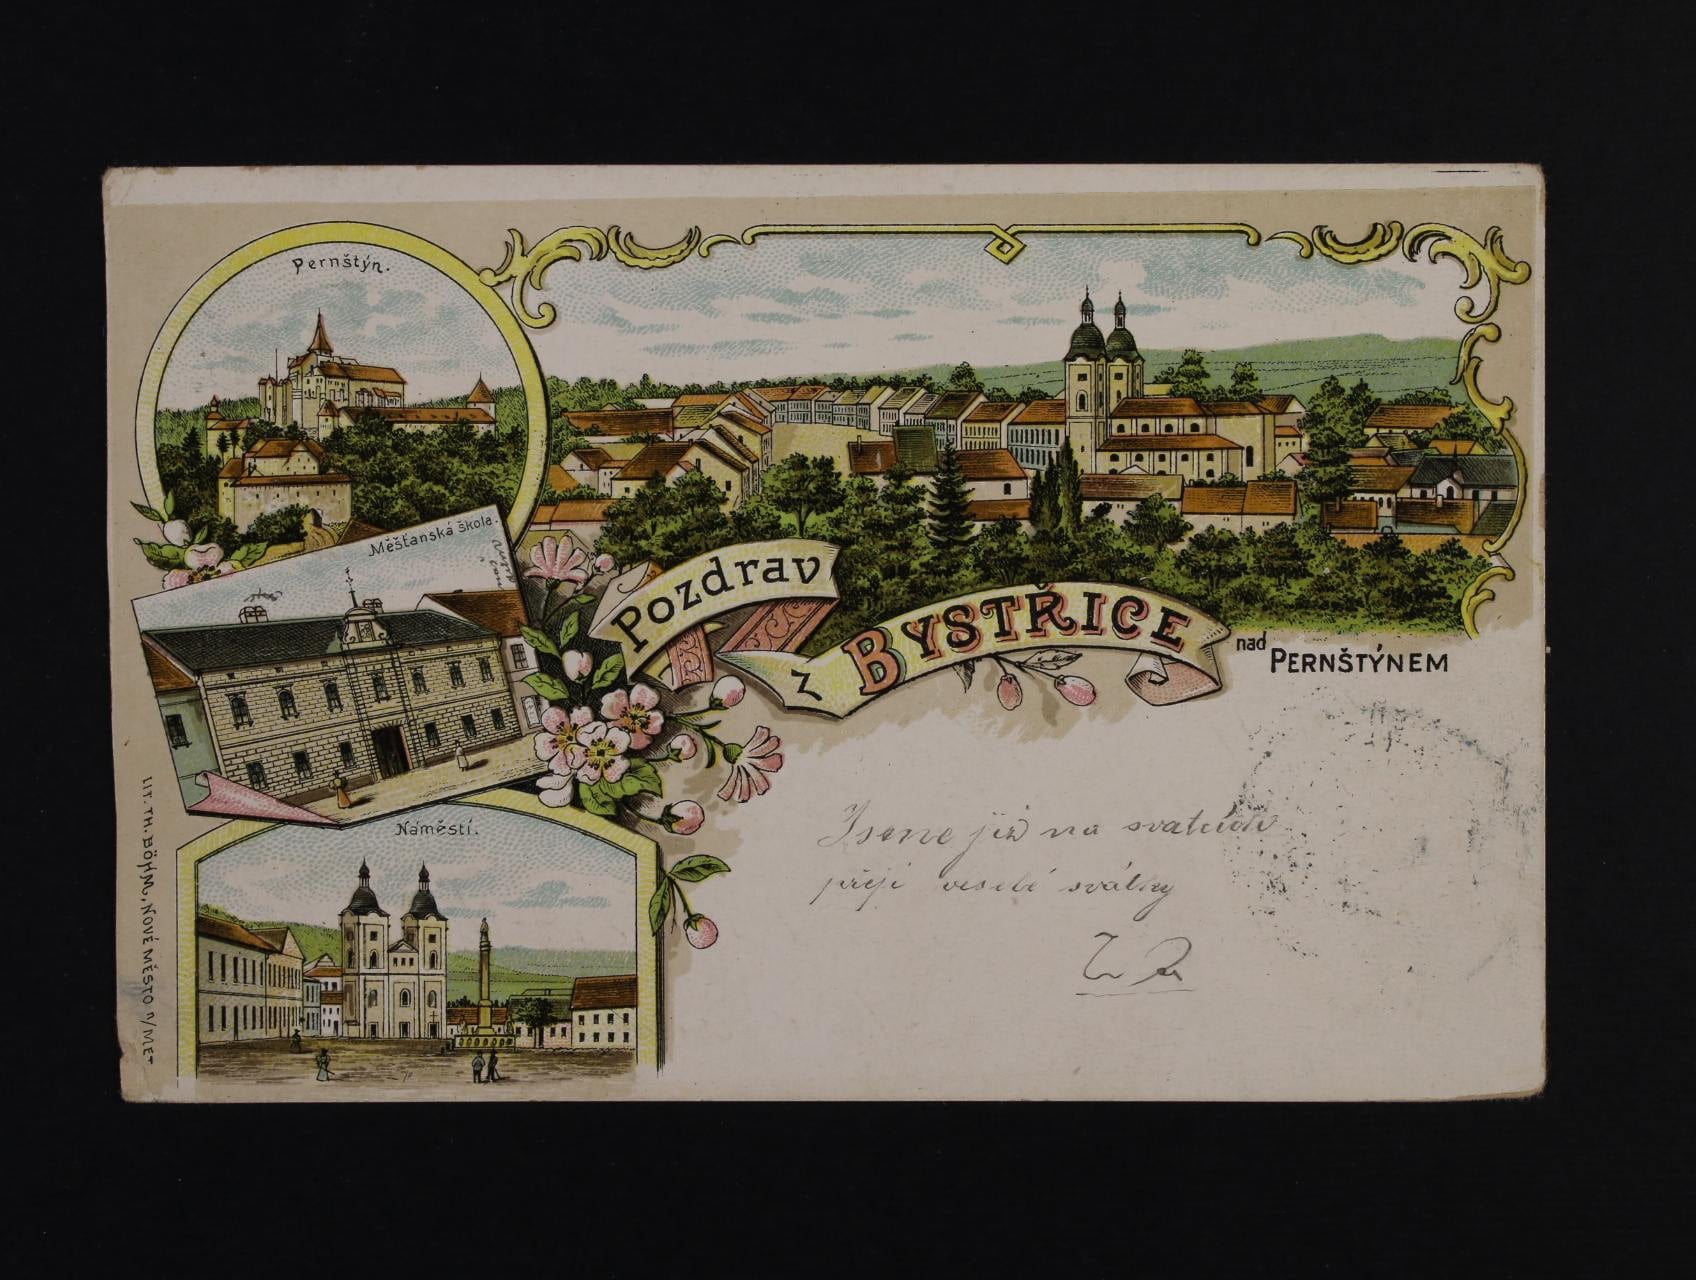 Pernštýn.
Měšťanská škola.
Pozdrav
z BYSTŘICE
nad PERNŠTÝNEM
Náměstí.
Jsme již na
přeji veselé svátky
LIT. TH. BÖHM, NOVÉ MĚSTO n/MET